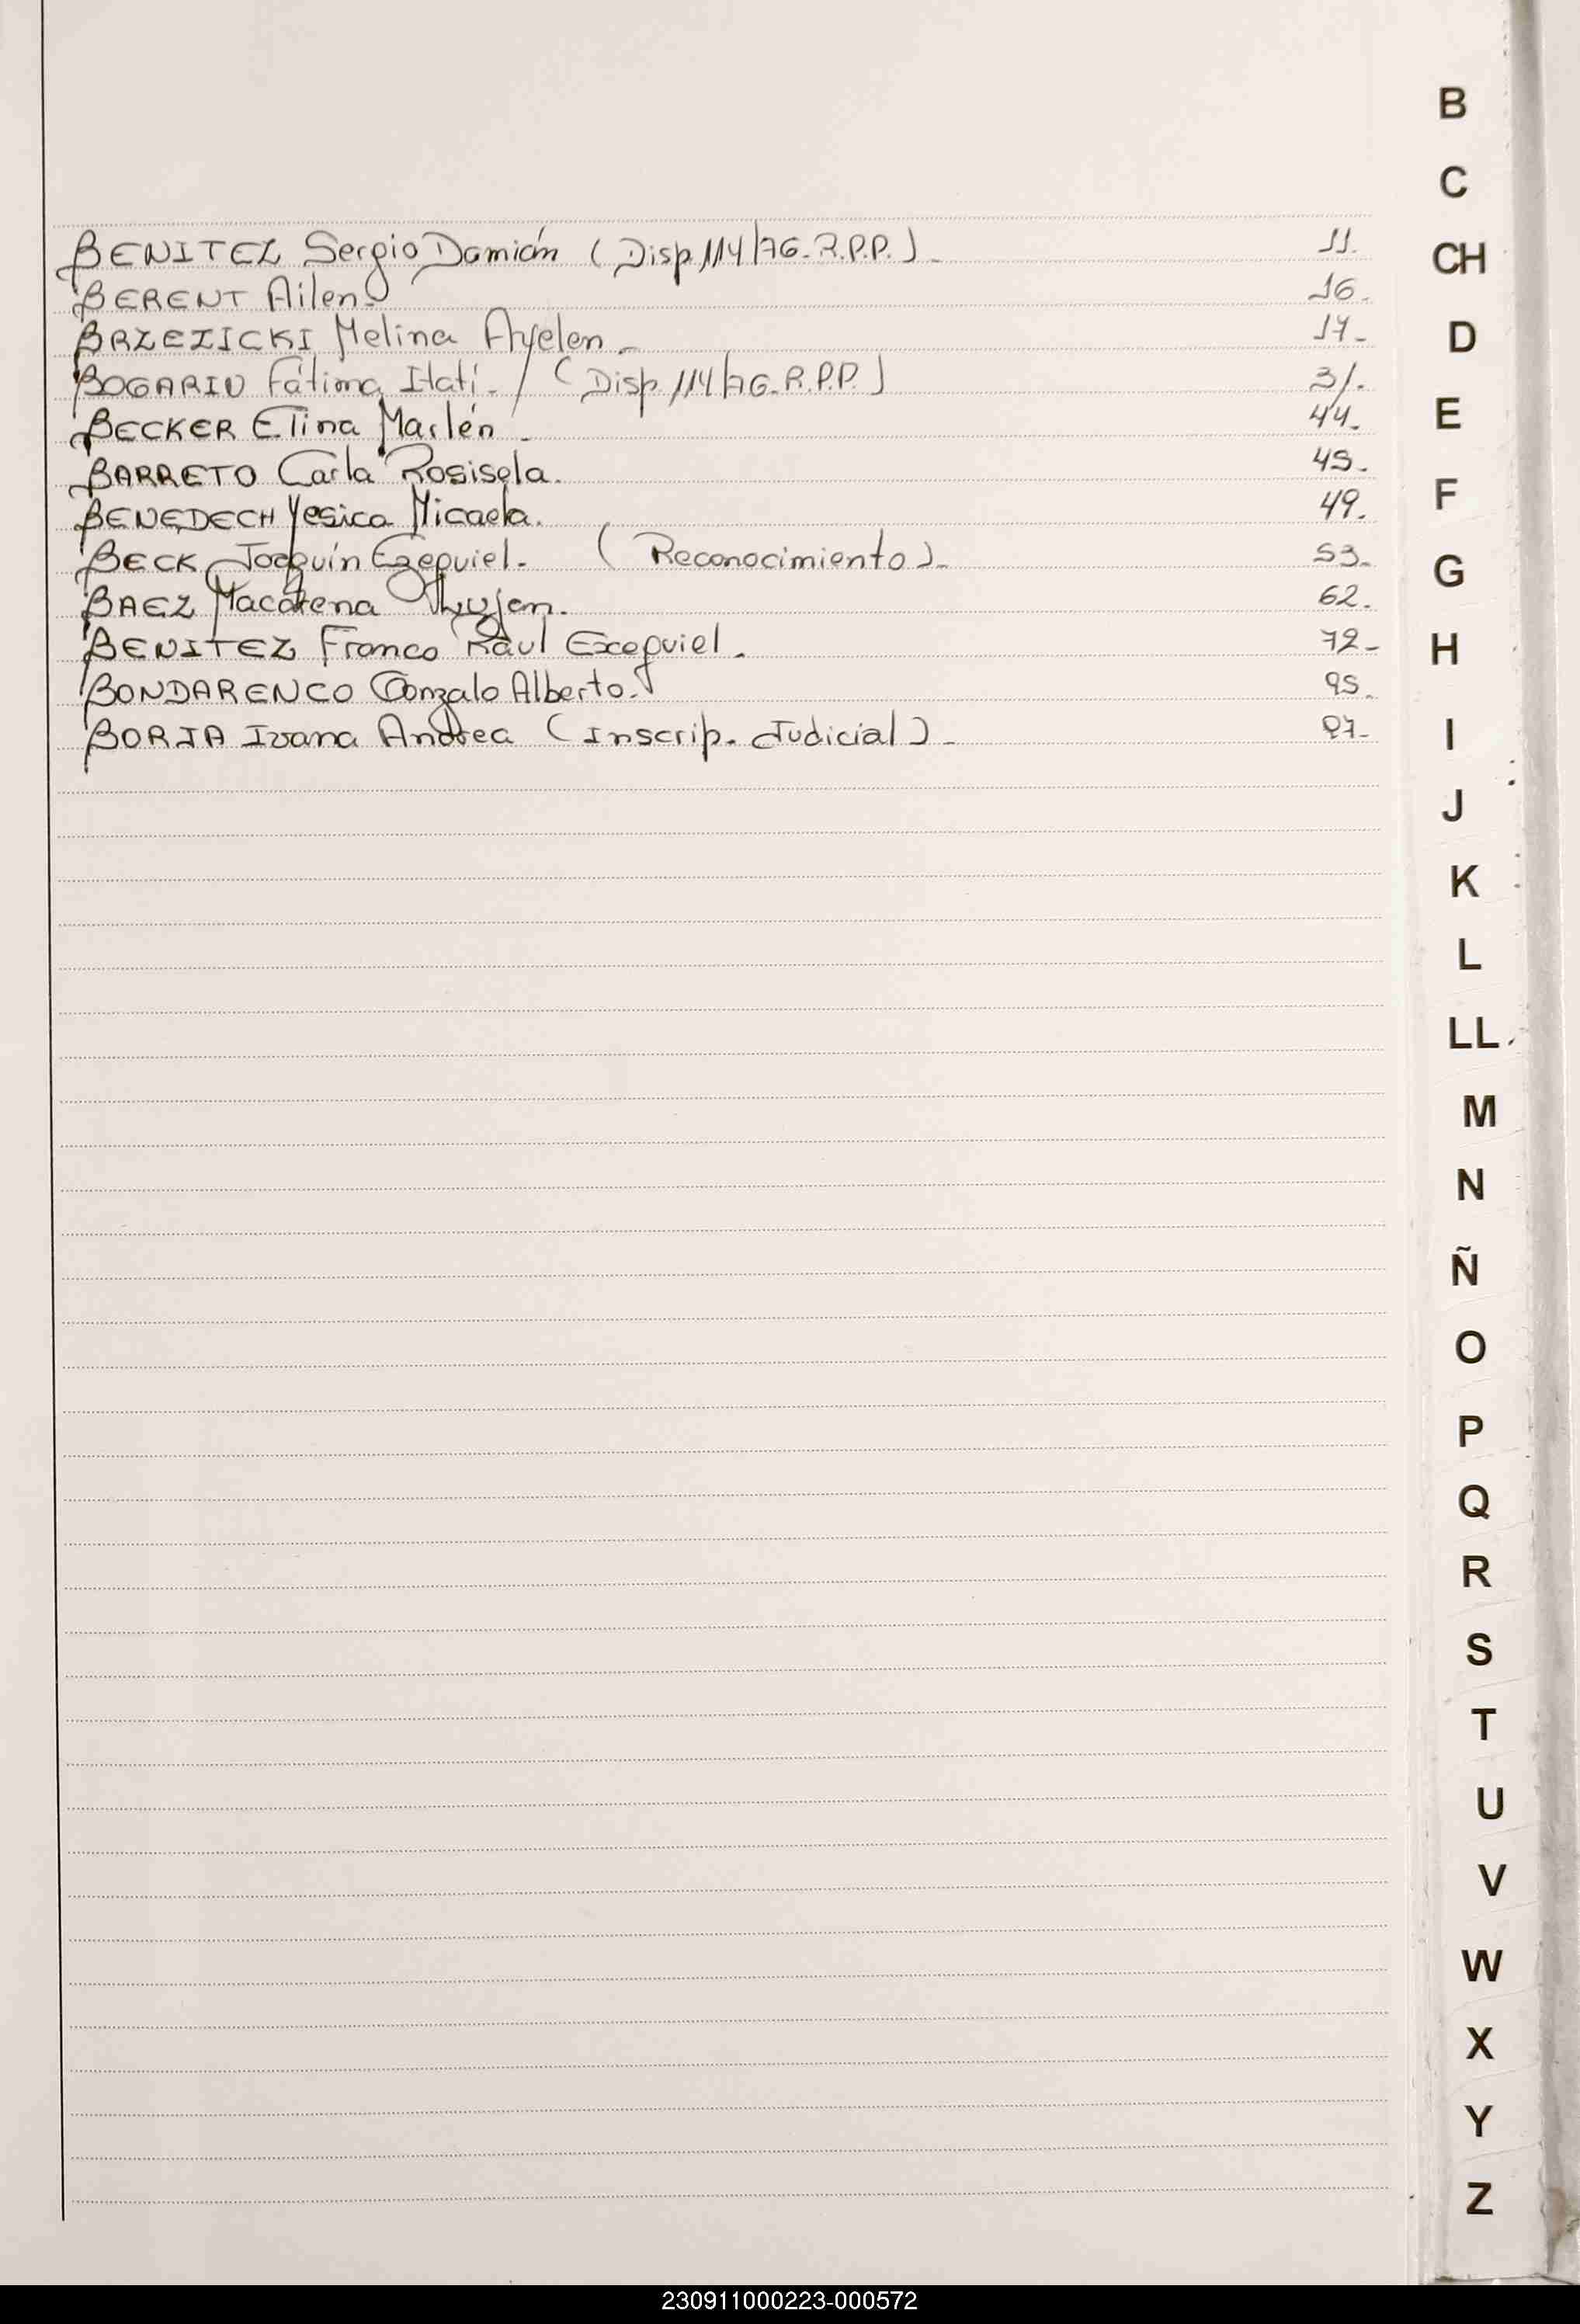 BENITEZ Sergio Damián (Disp. 114/76-R.P.P.)- 11.
BERENT Ailen- 16-
BRZEZICKI Melina Ayelen- 17-
BOGARIN Fátima Itatí-/ (Disp. 114/76-R.P.P.) 31.
BECKER Elina Marlén- 44.
BARRETO Carla Rosisela. 45.
BENEDECH Yesica Micaela. 49.
BECK Joaquín Ezequiel- (Reconocimiento)- 53-
BAEZ Macarena Lujan. 62.
BENITEZ Franco Raúl Exequiel. 72-
BONDARENCO Gonzalo Alberto. 95.
BORJA Ivana Andrea (Inscrip. Judicial)- 97-
B
C
CH
D
E
F
G
H
I
J
K
L
LL
M
N
Ñ
O
P
Q
R
S
T
U
V
W
X
Y
Z
230911000223-000572